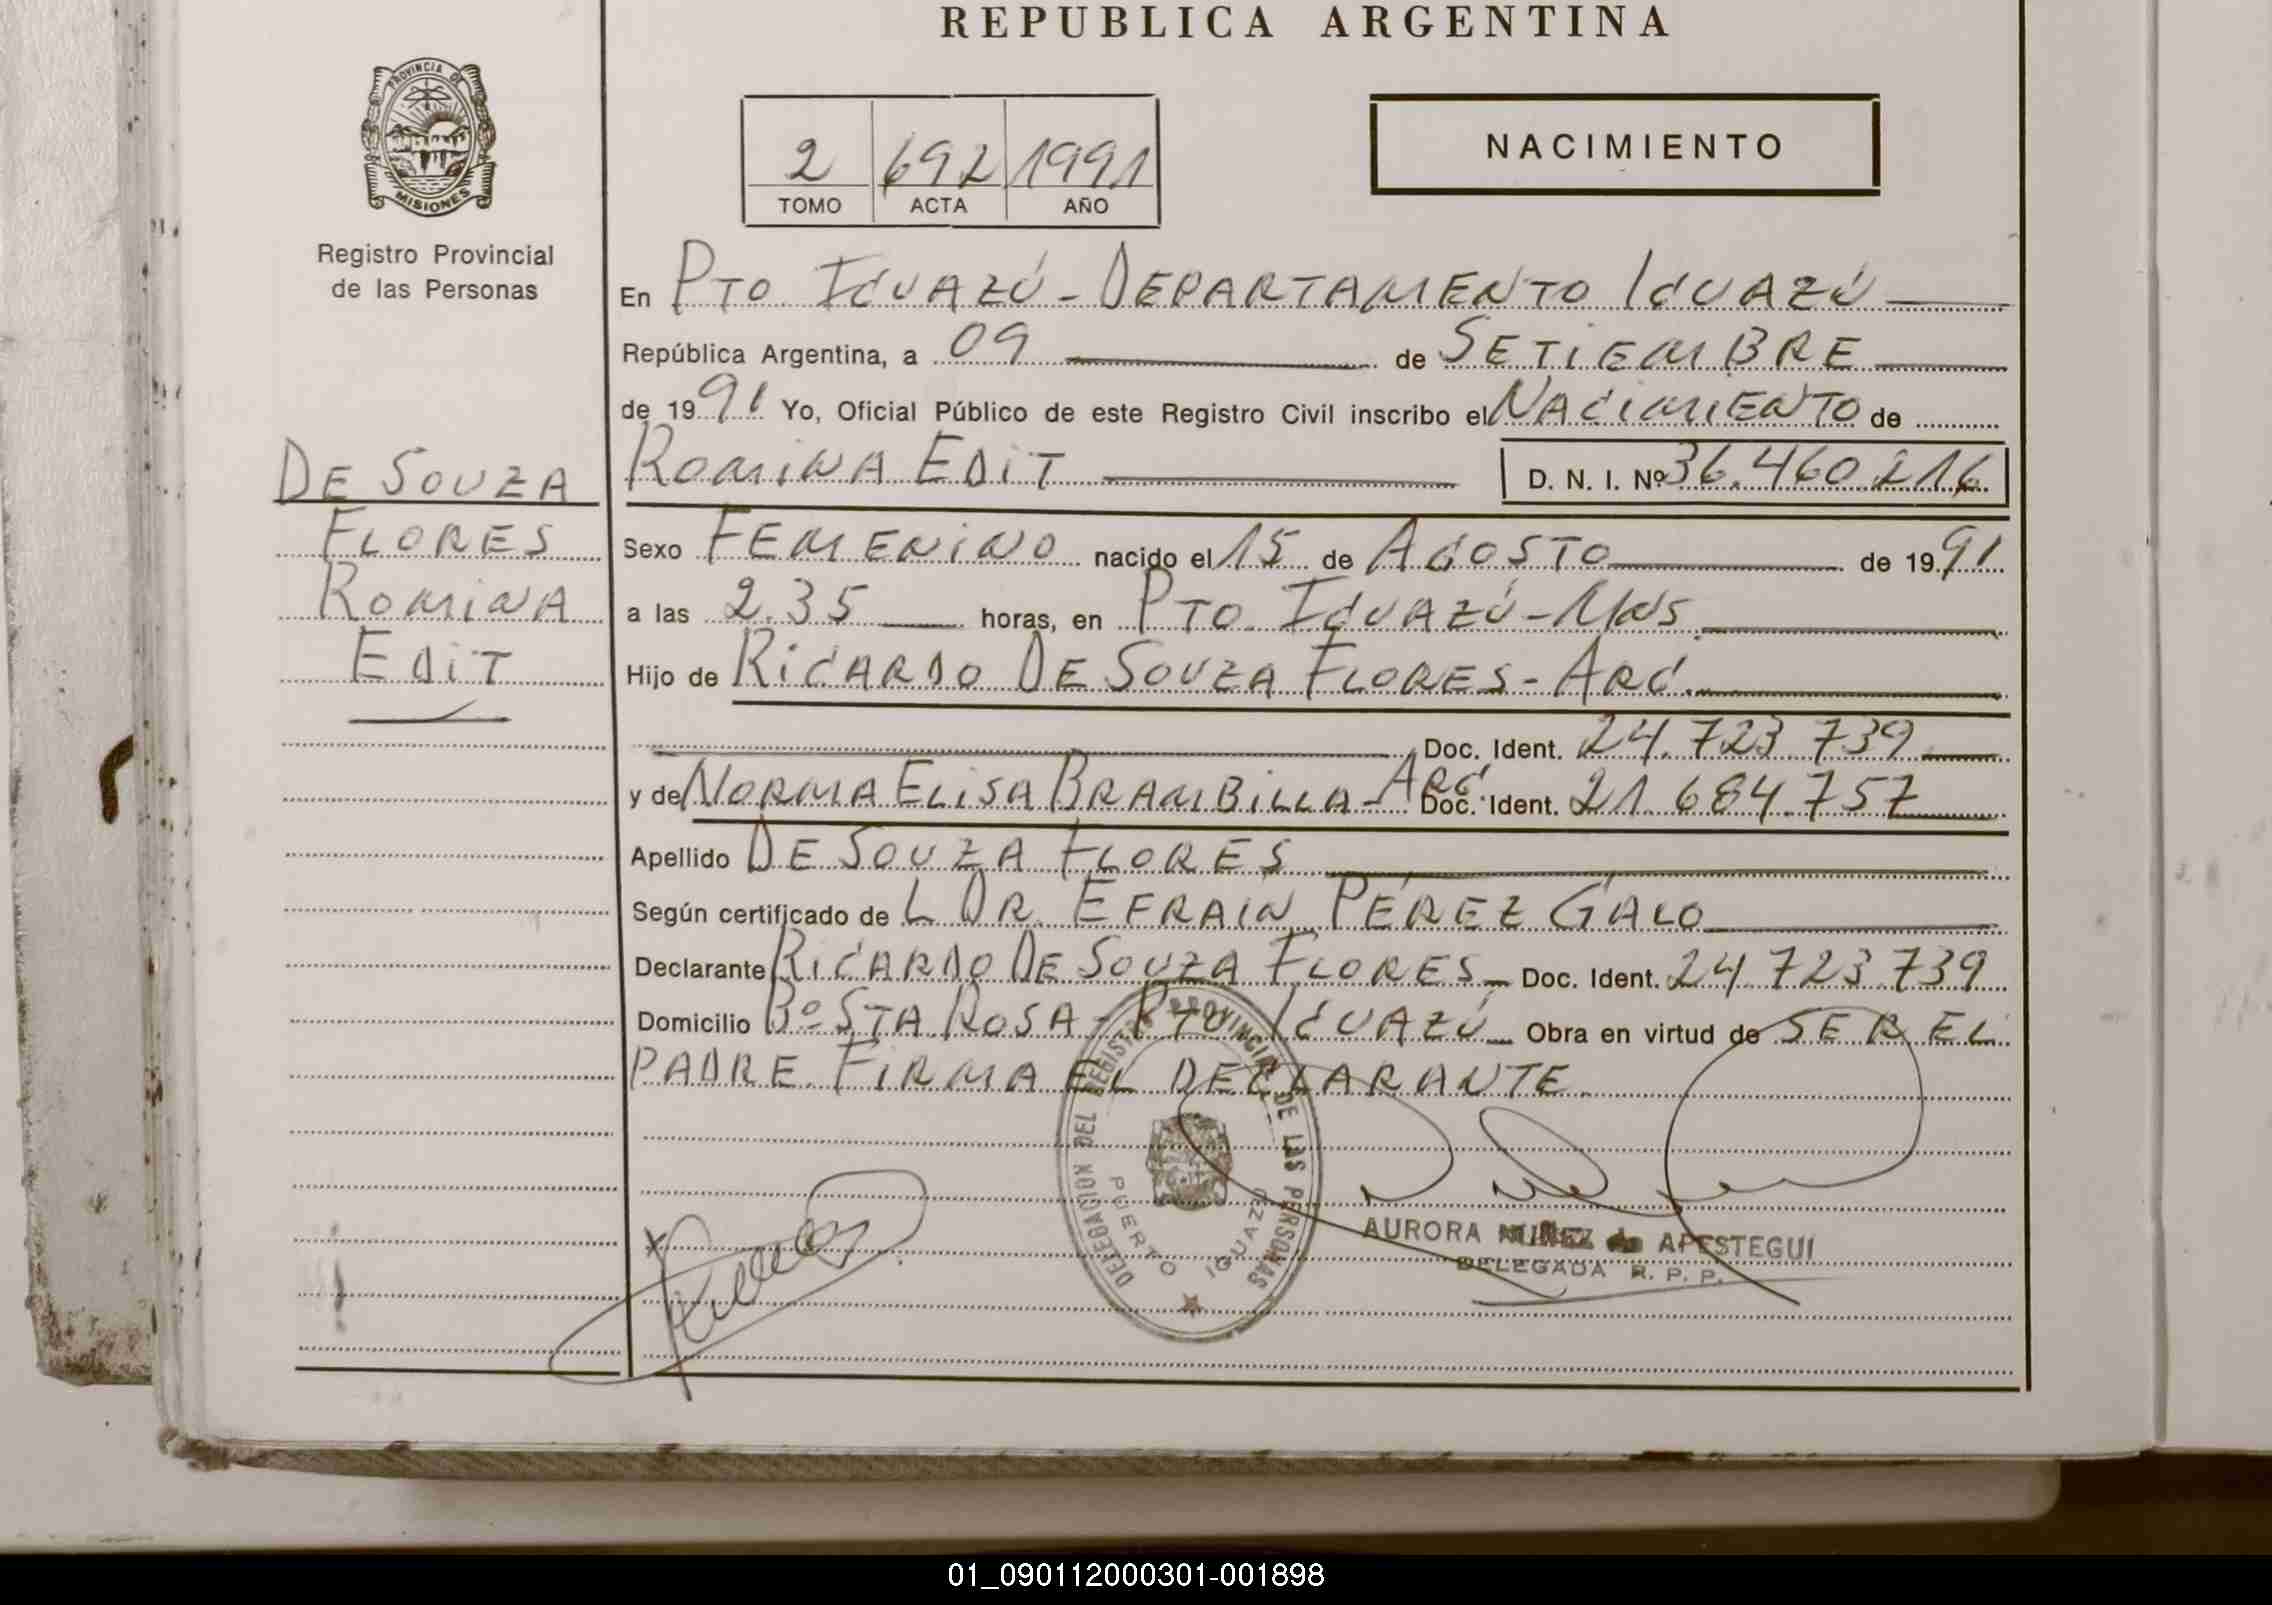 REPUBLICA ARGENTINA
PROVINCIA DE
MISIONES
Registro Provincial
de las Personas
2 692 1991
TOMO ACTA AÑO
NACIMIENTO
En PTO. IGUAZÚ - DEPARTAMENTO IGUAZÚ
República Argentina, a 09 de SETIEMBRE
de 1991 Yo, Oficial Público de este Registro Civil inscribo el NACIMIENTO de
DE SOUZA
FLORES
ROMINA
EDIT
ROMINA EDIT D. N. I. Nº 36.460.216
Sexo FEMENINO nacido el 15 de AGOSTO de 1991
a las 2.35 horas, en PTO. IGUAZÚ - MNS.
Hijo de RICARDO DE SOUZA FLORES - ARG.
Doc. Ident. 24.723.739
y de NORMA ELISA BRAMBILLA - ARG. Doc. Ident. 21.684.757
Apellido DE SOUZA FLORES
Según certificado de L DR. EFRAIN PÉREZ GALO
Declarante RICARDO DE SOUZA FLORES Doc. Ident. 24.723.739
Domicilio Bº STA. ROSA - PTO. IGUAZÚ Obra en virtud de SER EL
PADRE. FIRMA EL DECLARANTE.
DELEGACION DEL REGISTRO PROVINCIAL DE LAS PERSONAS
PUERTO IGUAZU
AURORA NUÑEZ de APESTEGUI
DELEGADA R. P. P.
01_090112000301-001898